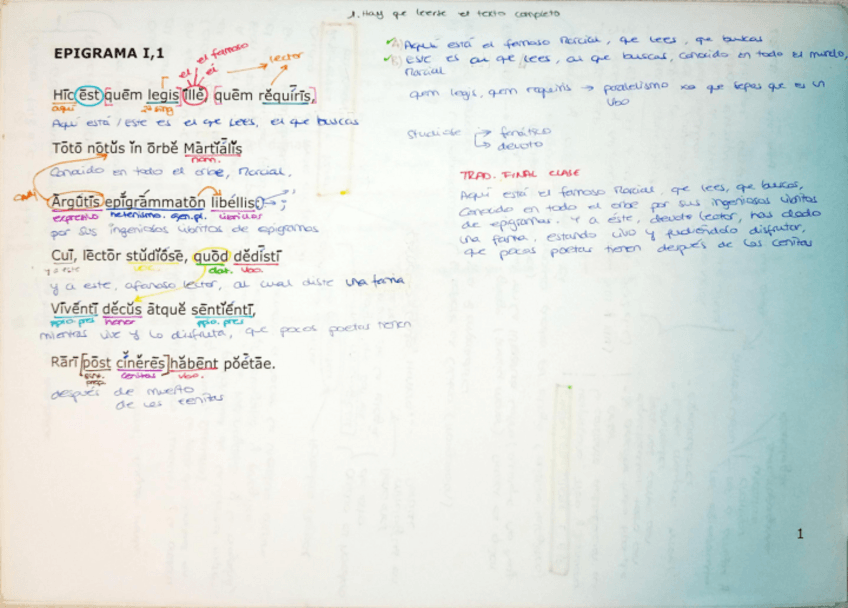 1. Hay que leerse el texto completo
EPIGRAMA I,1
el el famoso
él
lector
Hīc ēst quēm lēgis īllĕ, quēm rĕquīrīs,
aquí 2ª sing
Aquí está / Este es el que lees, el que buscas
Tōtō nōtŭs ĭn ōrbĕ Mārtĭālĭs
nom.
Conocido en todo el orbe, Marcial,
Ārgūtīs epĭgrāmmatōn libéllis:
expresivo helenismo. gen. pl. libritos
por sus ingeniosos libritos de epigramas
Cuī, lēctōr stŭdĭōsĕ, quōd dĕdīstī
y a este voc. dat. vbo.
y a este, afanoso lector, al cual diste una fama
Vīvēntī dĕcŭs ātquĕ sēntĭēntī,
ptcio. pres honor ptcio. pres
mientras vive y lo disfruta, que pocos poetas tienen
Rārī pōst cĭnĕrēs hăbēnt pŏētāe.
prep. cenizas vbo.
después de muerto
de las cenizas
Aquí está el famoso Marcial, que lees, que buscas
Este es al que lees, al que buscas, conocido en todo el mundo,
Marcial
quem legis, quem requiris → paralelismo xa que sepas que es un
vbo
Studiose → fanático
→ devoto
TRAD. FINAL CLASE
Aquí está el famoso Marcial, que lees, que buscas,
Conocido en todo el orbe por sus ingeniosos libritos
de epigramas. Y a éste, devoto lector, has dado
una fama, estando vivo y pudiéndolo disfrutar,
que pocos poetas tienen después de las cenizas
1